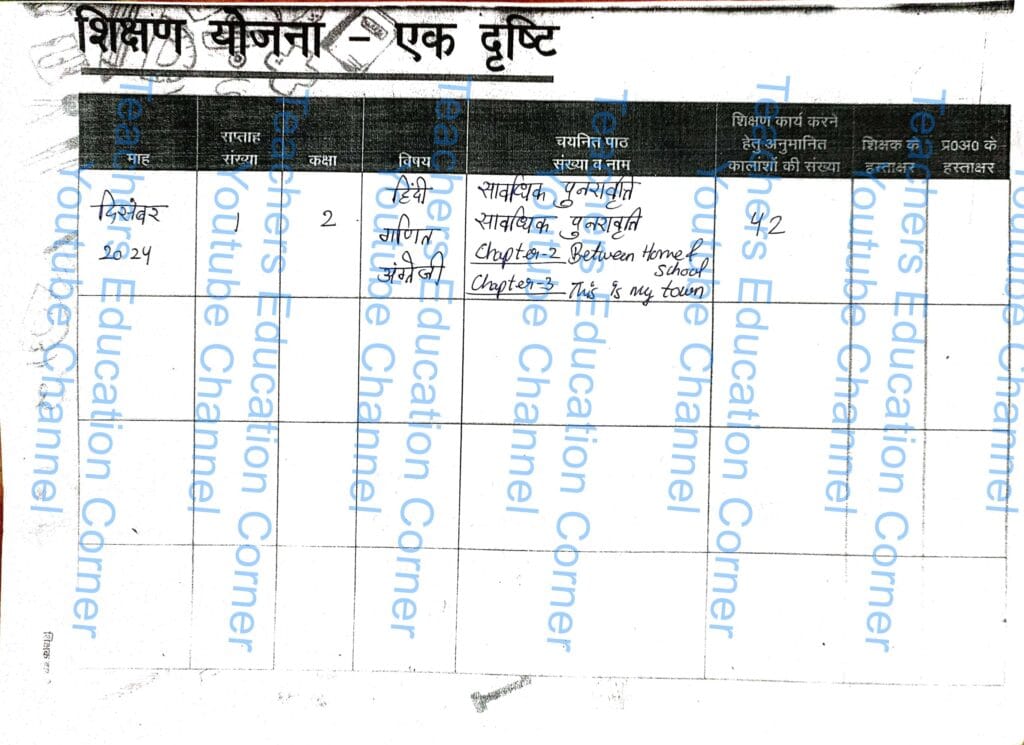 शिक्षण योजना - एक दृष्टि
माह
सप्ताह
संख्या
कक्षा
विषय
चयनित पाठ
संख्या व नाम
शिक्षण कार्य करने
हेतु अनुमानित
कालांशों की संख्या
शिक्षक के
हस्ताक्षर
प्र0अ0 के
हस्ताक्षर
दिसंबर
2024
1
2
हिंदी
गणित
अंग्रेजी
सावधिक पुनरावृति
सावधिक पुनरावृति
Chapter-2 Between Home &
school
Chapter-3 This is my town
42
Teachers Education Corner
Youtube Channel
Teachers Education Corner
Youtube Channel
Teachers Education Corner
Youtube Channel
Teachers Education Corner
Youtube Channel
Teachers Education Corner
Youtube Channel
Teachers Education Corner
Youtube Channel